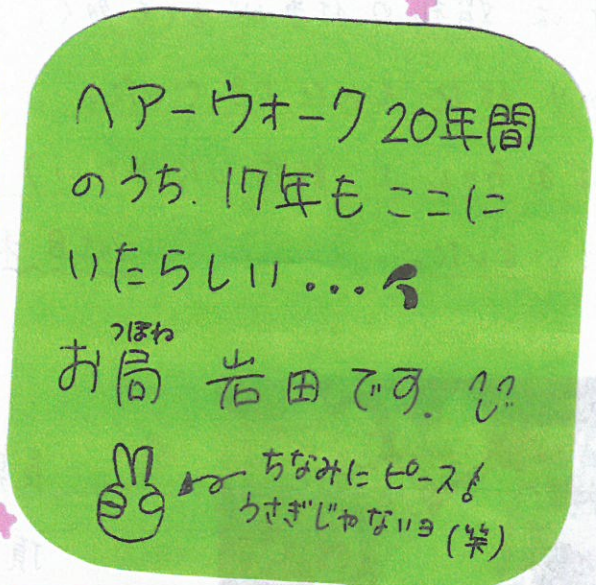 ヘアーウォーク 20年間
のうち. 17年も ここに
いたらしい...
お局 岩田です.
つぼね
ちなみに ピース!
うさぎじゃないヨ (笑)